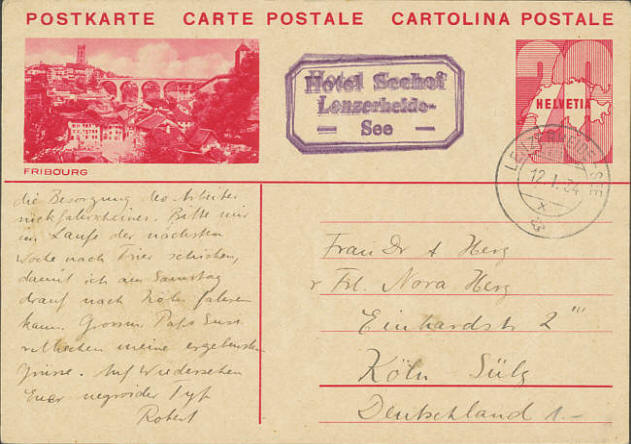 POSTKARTE CARTE POSTALE CARTOLINA POSTALE
FRIBOURG
Hotel Seehof
Lenzerheide-
See
20
HELVETIA
LENZERHEIDE-SEE
12.I.34
X
die Besorgung des Arbeiter
rückfahrscheines. Bitte mir
im Laufe der nächsten
Woche nach Trier schicken,
damit ich am Samstag
drauf nach Köln fahren
kann. Paps
meine ergebensten
Grüsse. Auf Wiedersehen
Euer negroider Typ
Robert
Frau Dr A Herz
Frl. Nora Herz
Einhardstr 2'''
Köln Sülz
Deutschland